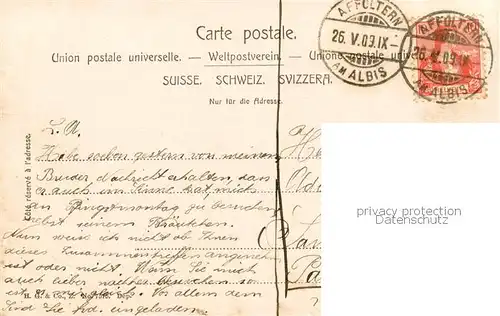 Carte postale.
Union postale universelle. — Weltpostverein. — Unione postale univer
SUISSE. SCHWEIZ. SVIZZERA.
Nur für die Adresse.
AFFOLTERN
26. V. 09. IX
AM ALBIS
AFFOLTERN
26. V. 09. IX
AM ALBIS
Côté réservé à l'adresse.
L. A.
Habe soeben gestern von meinem
Bruder Nachricht erhalten, dass
er auch im Sinne hat, mich
an Pfingstmontag zu besuchen
nebst seinem Bräutchen.
Nun weiss ich nicht ob Ihnen
dieses Zusammentreffen angenehm
ist oder nicht. Wenn Sie mich
auch lieber nachher besuchen so
ist es mir gleich. Vor allem dem
sind Sie frd. eingeladen.
privacy protection
Datenschutz